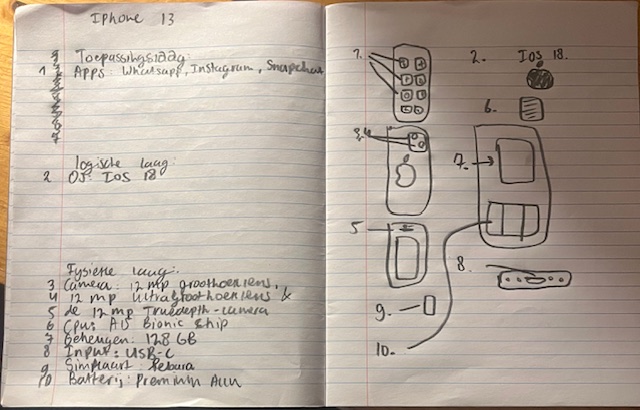 Iphone 13
Toepassingslaag:
1 Apps: Whatsapp, Instagram, Snapchat
logische laag:
2 OS: IOS 18
Fysieke laag:
3 Camera: 12 mp groothoeklens,
4 12 mp Ultragroothoeklens &
5 de 12 mp Truedepth-camera
6 Cpu: A15 Bionic chip
7 Geheugen: 128 GB
8 Input: USB-C
9 Simkaart:
10 Batterij: Premium
1.
2. IOS 18.
3,4
5
6.
7.
8.
9.
10.